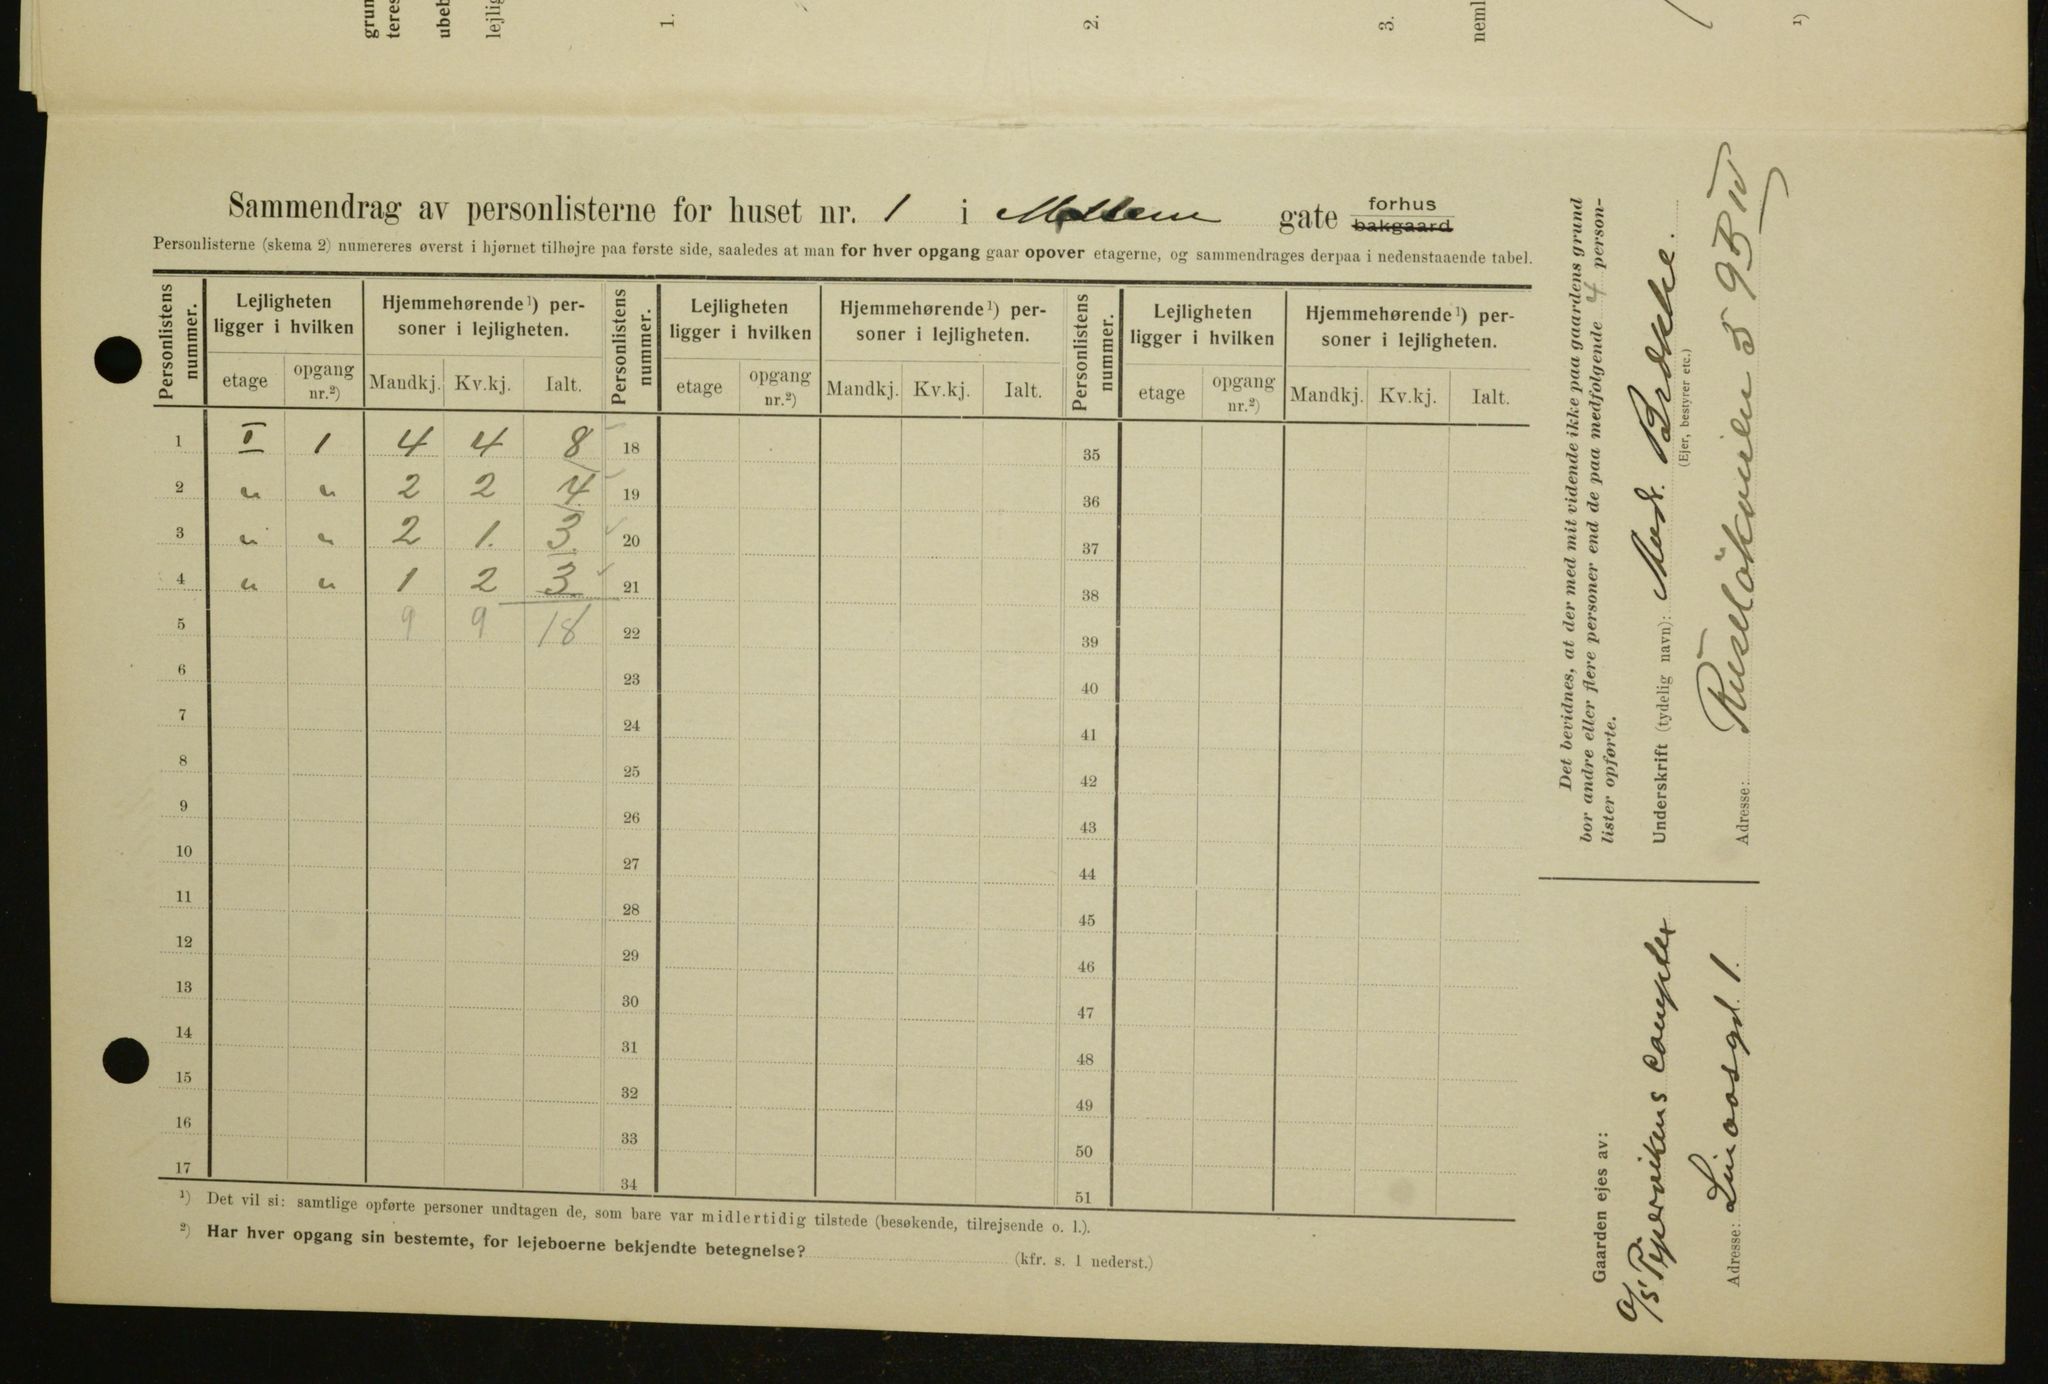 grun
teres
ubeb
lejlig
1.
2.
3.
neml
1)
Sammendrag av personlisterne for huset nr. 1 i Mellem gate forhus bakgaard
Personlisterne (skema 2) numereres øverst i hjørnet tilhøjre paa første side, saaledes at man for hver opgang gaar opover etagerne, og sammendrages derpaa i nedenstaaende tabel.
Personlistens nummer. Lejligheten ligger i hvilken Hjemmehørende ¹) personer i lejligheten. Personlistens nummer. Lejligheten ligger i hvilken Hjemmehørende ¹) personer i lejligheten. Personlistens nummer. Lejligheten ligger i hvilken Hjemmehørende ¹) personer i lejligheten.
etage opgang nr.²) Mandkj. Kv.kj. Ialt. etage opgang nr.²) Mandkj. Kv.kj. Ialt. etage opgang nr.²) Mandkj. Kv.kj. Ialt.
1 II 1 4 4 8 18 35
2 " " 2 2 4 19 36
3 " " 2 1. 3 20 37
4 " " 1 2 3 21 38
5 9 9 18 22 39
6 23 40
7 24 41
8 25 42
9 26 43
10 27 44
11 28 45
12 29 46
13 30 47
14 31 48
15 32 49
16 33 50
17 34 51
¹) Det vil si: samtlige opførte personer undtagen de, som bare var midlertidig tilstede (besøkende, tilrejsende o. l.).
²) Har hver opgang sin bestemte, for lejeboerne bekjendte betegnelse? (kfr. s. 1 nederst.)
Det bevidnes, at der med mit vidende ikke paa gaardens grund
bor andre eller flere personer end de paa medfølgende 4 person-
lister opførte.
Underskrift (tydelig navn): Brække.
(Ejer, bestyrer etc.)
Adresse: Ruselökveien 59
Gaarden ejes av:
A/S Pipervikens Complex
Adresse: 1.